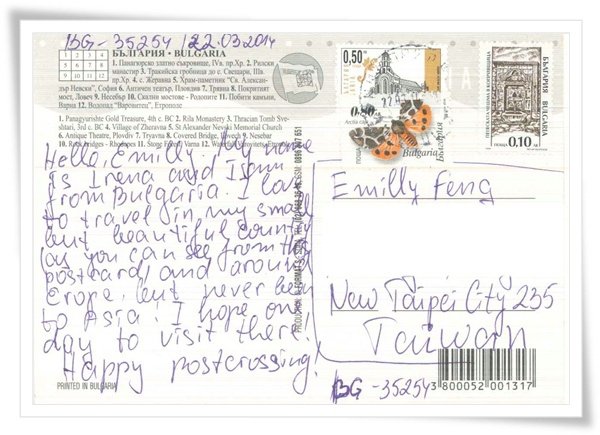 BG-35254 / 22.03.2014
БЪЛГАРИЯ • BULGARIA
1. Панагюрско златно съкровище, IVв. пр.Хр. 2. Рилски
манастир 3. Тракийска гробница до с. Свещари, IIIв.
пр.Хр. 4. с. Жеравна 5. Храм-паметник "Св. Алексан-
дър Невски", София 6. Античен театър, Пловдив 7. Трявна 8. Покритият
мост, Ловеч 9. Несебър 10. Скални мостове - Родопите 11. Побити камъни,
Варна 12. Водопад "Варовитец", Етрополе
1. Panagyurishte Gold Treasure, 4th c. BC 2. Rila Monastery 3. Thracian Tomb Sve-
shtari, 3rd c. BC 4. Village of Zheravna 5. St Alexander Nevski Memorial Church
6. Antique Theatre, Plovdiv 7. Tryavna 8. Covered Bridge, Lovech 9. Nesebar
10. Rock bridges - Rhodopes 11. Stone Forest, Varna 12.
Hello, Emilly. My name
is Irena and I am
from Bulgaria. I love
to travel in my small
but beautiful country
(as you can see from the
postcard) and around
Erope, but never been
to Asia. I hope one
day to visit there!
Happy postcrossing!
PRINTED IN BULGARIA
0,50
0.80
Arctia
Bulgaria
БЪЛГАРИЯ
BULGARIA
ПОЩА 0.10 лв
Emilly Feng
New Taipei City 235
Taiwan
BG-35254
3800052001317